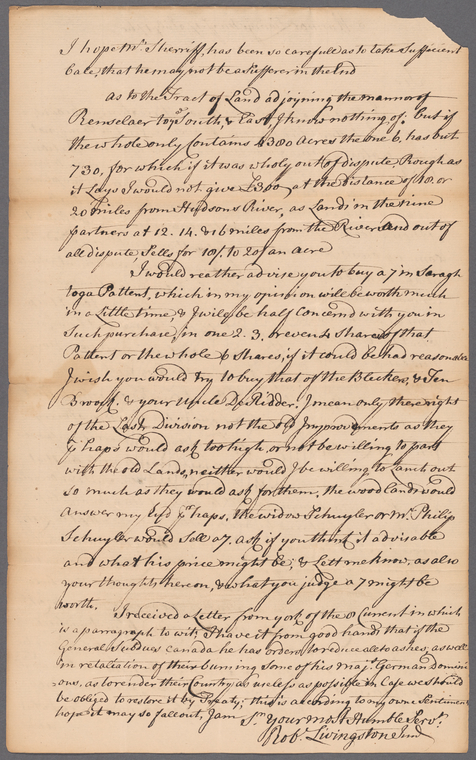 I hope Mr. Sherriff, has been so carefull as to take Sufficient
bale, that he may not be a Sufferer in the End
as to the Tract of Land adjoyning the mannor of
Renselaer to ye South, & East I know nothing of, but if
the whole only Contains 4300 Acres the one 6, has but
730, for which if it was wholy out of dispute, Rough as
it Lays I would not give £300, at the distance of 18 or
20 miles from Hudsons River, as Land in the nine
partners at 12. 14. & 16 miles from the River and out of
all dispute, Sells for 18/. to 20/ an acre
I would reather advise you to buy a 7 in Saragh
toga Pattent, which in my opinion will be worth much
in a Little time, & I wil be half Concernd with you in
Such purchase, in one 2. 3. or even 4 Shares of that
Pattent or the whole 6 Shares, if it could be had reasonable
I wish you would try to buy that of the Bleekers, & Ten
Broock. & your Uncle DRidder. I mean only there right
of the Last Division not the old Improvements as they
p'haps would ask too high, or not be willing to part
with the old Lands, neither would I be willing to lanch out
so much as they would ask for them, the wood lands would
answer my End, p'haps, the widow Schuyler or Mr. Philip
Schuyler would Sell a 7. ask if you think it advisable
and what his price might be; & Lett me know, as also
your thoughts hereon, & what you judge a 7 might be
worth.
I received a Letter from york of the 8 Current in which
is a parragraph to wit; I have it from good hands that if the
General Subdues Canada he has orders, to reduce all to ashes, as well
in retaleation of their burning Some of his Majts. German Domini
=ons, as to render their Country as useless as possible in Case we should
be obliged to restore it by Treaty; this is according to my own Sentiment
hope it may so fall out, I am Sr. Your most Humble Servt.
Robt. Livingston Junr.